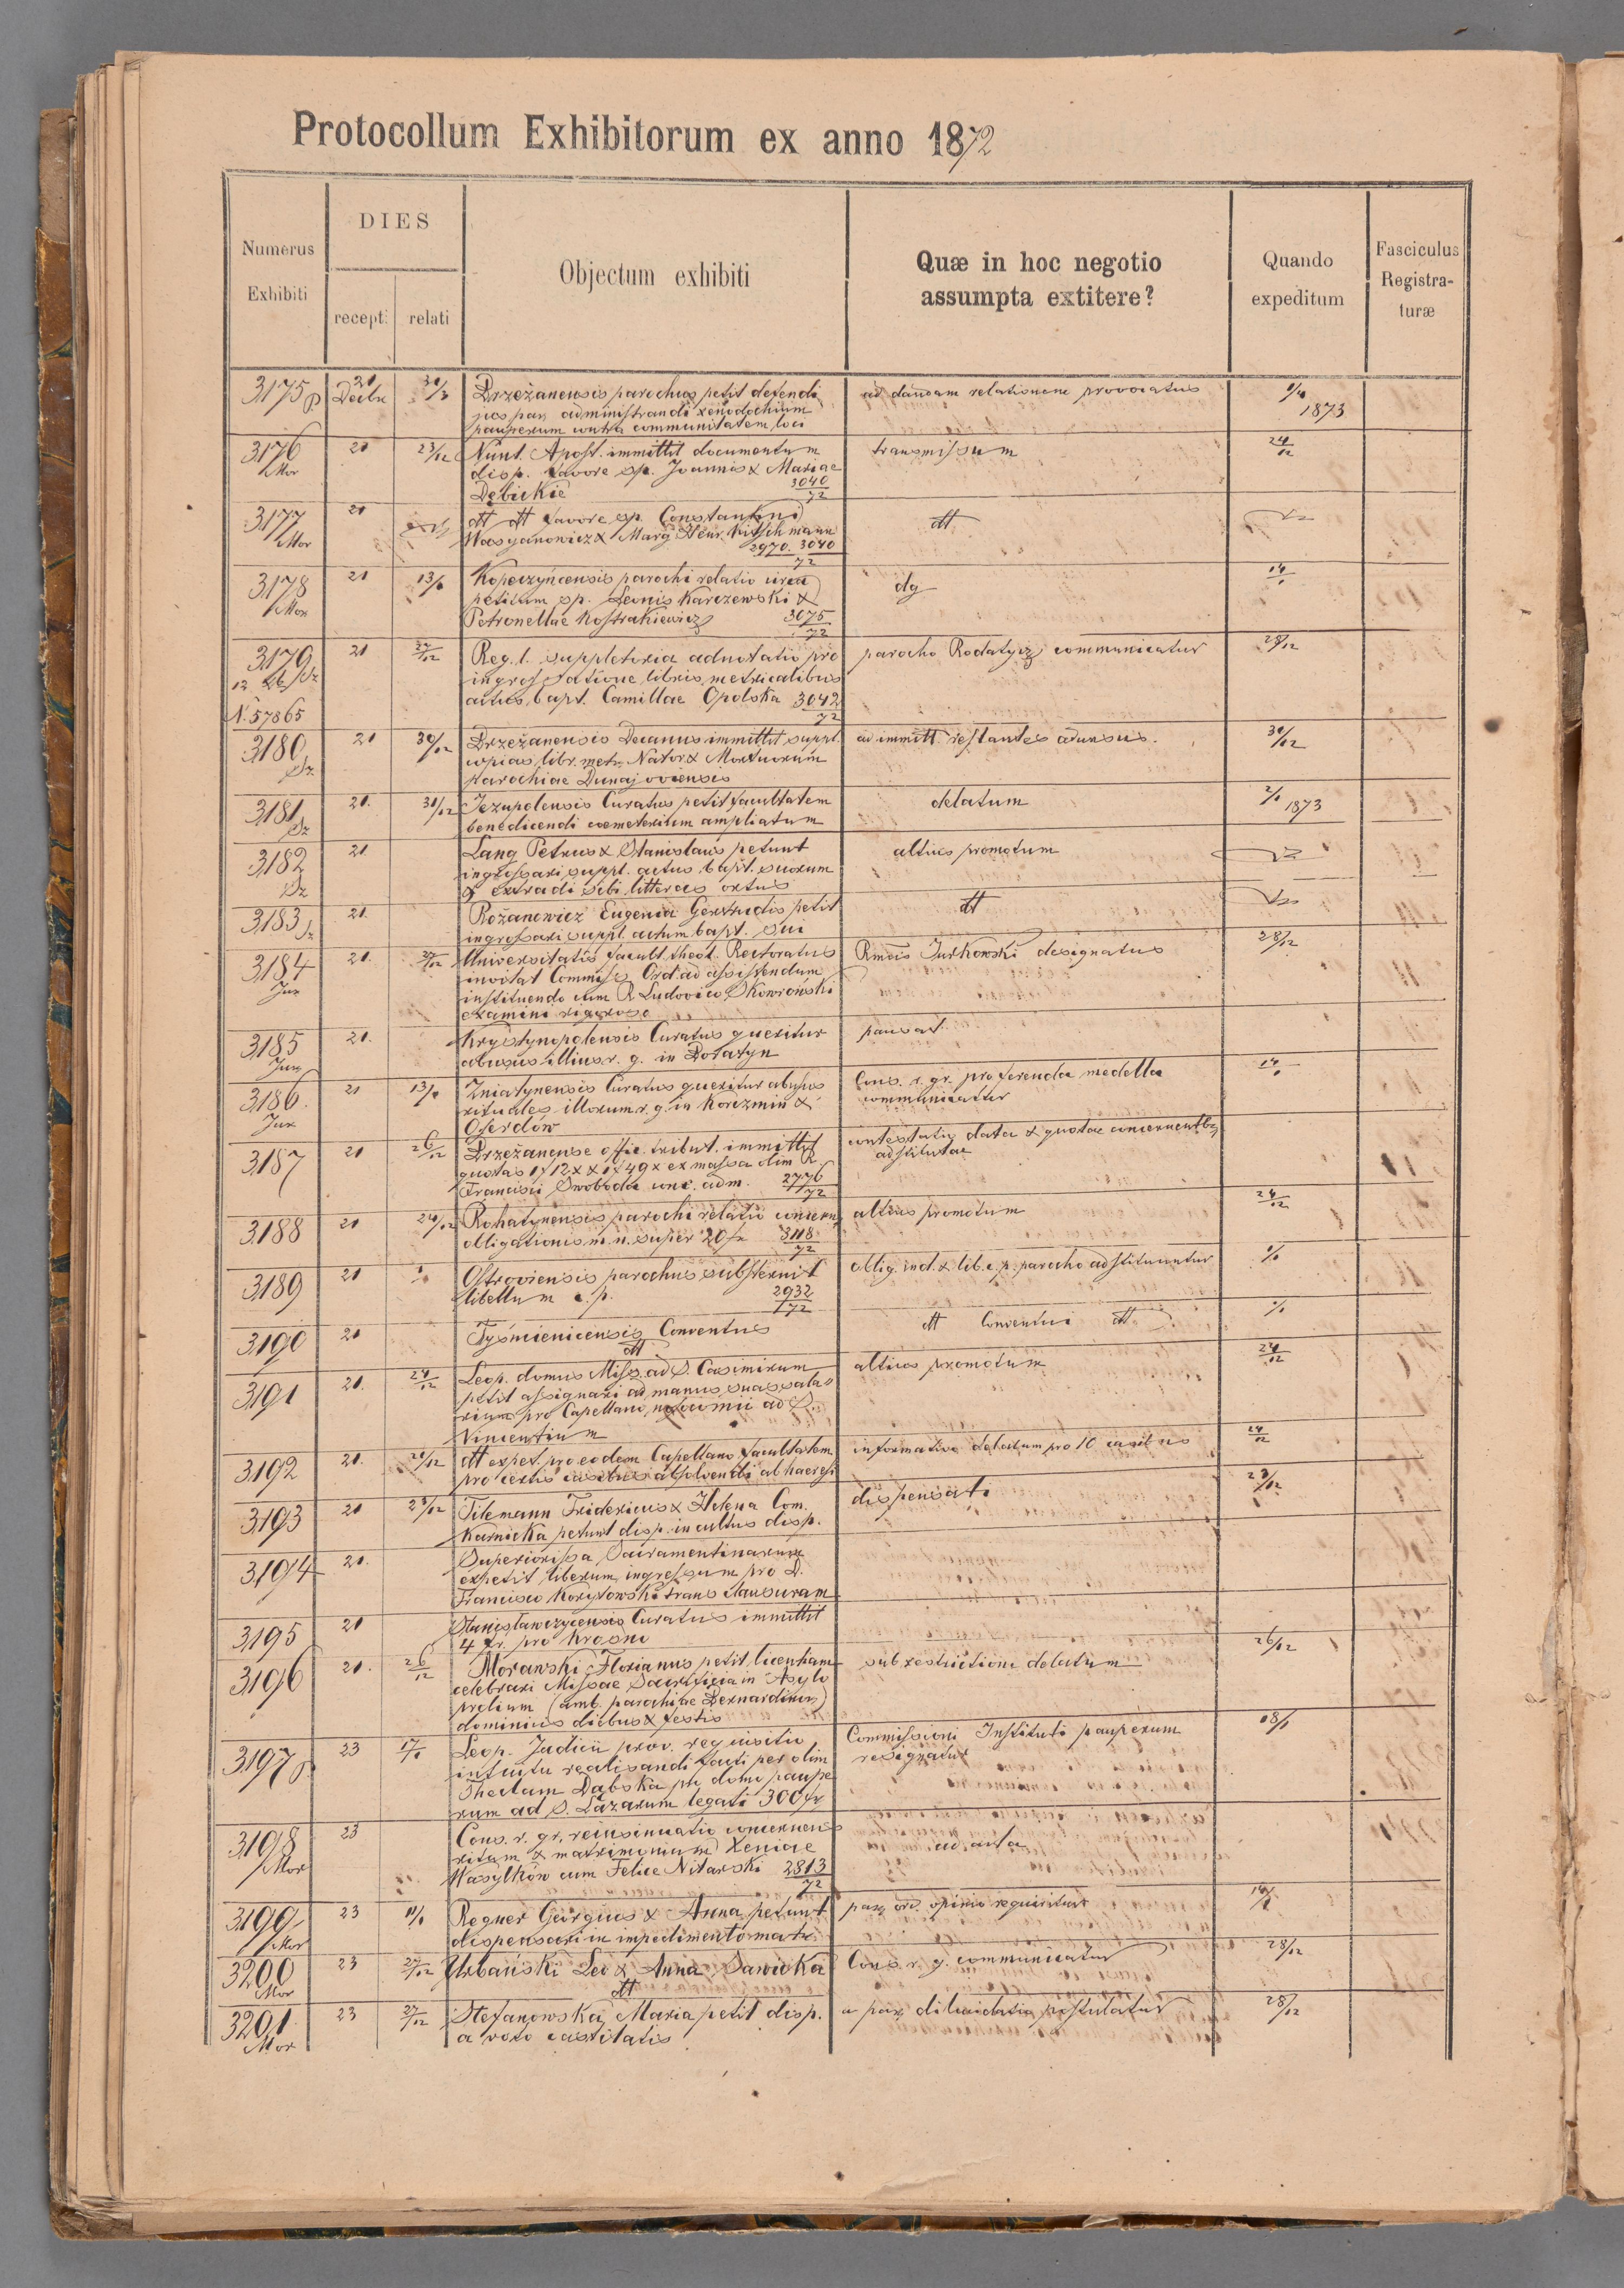 Protocollum Exhibitorum ex anno 1872
Numerus Exhibiti
DIES
recept:
relati
Objectum exhibiti
Quæ in hoc negotio assumpta extitere?
Quando expeditum
Fasciculus Registra-turæ
3175 20 Decbr
Brzeżanensis parochus petit defendi
jus par. administrandi xenodochium
pauperum contra communitatem loci
ad dandam relationem provocatus
1873
3176 Mor 20 23/12
Nunt. Apost. immittit documentum
disp. favore sp. Joannis & Mariae
Dębickie 3040/72
transmissum
24/12
3177 Mor 20
dtt dtt favore sp. Constantini
Wasyanowicz & Marg. Henr. Kitschmann
2970. 3040/72
dtt
3178 Mor 21 13/1
Kopeczyńcensis parochi relatio circa
petitum sp. Leonis Karczewski &
Petronellae Kostrakiewicz 3075/72
14/1
3179 21 27/12
N. 57865
Reg. l. suppletoria adnotatio pro
ingrossatione libris metricalibus
actus bapt. Camillae Opolska 3042/72
parocho Rodatycz communicatur
28/12
3180 21 30/12
Brzeżanensis Decanus immittit suppl.
copias libr. metr. Nator. & Mortuorum
Parochiae Dunajoviensis
ad immitt. restantes adursus.
30/12
3181 21. 30/12
Jezupolensis Curatus petit facultatem
benedicendi coemeterium ampliatum
delatum
2/1 1873
3182 21.
Lang Petrus & Stanislaus petunt
ingrossari suppl. actus bapt. suorum
& extradi sibi litteras ortus
altius promotum
3183 21.
Rożanowicz Eugenia Gertrudis petit
ingrossari suppl. actum bapt. sui
dtt
3184 Jur 20. 27/12
Universitatis facult. theol. Rectoratus
invitat Commiss. Ord. ad assistendum
instituendo cum R. Ludovico Skowroński
examini rigoroso
Rmus Jurkowski designatus
28/12
3185 Jur 20.
Krystynopolensis Curatus queritur
abusus illius r. g. in Boratyn
pausat.
3186. Jur 21 13/1
Zniatynensis Curatus queritur abusus
rituales illorum r. g. in Korczmin &
Oserdów
Cons. r. gr. pro ferenda medella
communicatur
14/1
3187 21 26/12
Brzeżanense offic. tribut. immittit
quotas 1f 12x & 1f 49x ex massa olim R.
Francisci Swoboda conc. adm. 2776/72
contestatio data & quotae concernentbs
adstitutae
3188 21 24/12
Rohatynensis parochi relatio concern.
obligationis m. n. super 20 fr 3118/72
altius promotum
24/12
3189 21
Ostroviensis parochus substernit
libellum c. p. 2932/72
oblig. ind. & lib. c. p. parocho adstituuntur
3190 21
Tyśmienicensis Conventus
dtt
dtt Conventui dtt
3191 21. 24/12
Leop. domus Miss. ad S. Casimirum
petit assignari ad manus suas sala-
rium pro Capellano nosocomii ad S.
Vincentium
altius promotum
24/12
3192 21.
dtt expet. pro eodem Capellano facultatem
pro certis casibus absolvendi ab haeresi
informative delatum pro 10 casibus
24/12
3193 21 23/12
Tilemann Fridericus & Helena Com.
Karnicka petunt disp. in cultus disp.
dispensati
23/12
3194 21.
Superiorissa Sacramentinarum
expetit liberum ingressum pro D.
Francisco Korytowski trans clausuram
3195 21
Stanisławczycensis Curatus immittit
4 fr. pro Krosno
3196 21. 26/12
Morawski Florianus petit licentiam
celebrari Missae Sacrificia in Asylo
prolium (amb. parochiae Bernardinor.)
dominicis diebus & festis
sub restrictione delatum
26/12
3197 23 17/1
Leop. Judicii prov. requisitio
intuitu realisandi facti per olim
Theclam Dąbska pro domo paupe-
rum ad S. Lazarum legati 300 fr
Commissioni Instituti pauperum
resignatur
18/1
3198 Mor 23
Cons. r. gr. reinsinuatio concernens
ritum & matrimonium Xeniae
Wasylków cum Felice Nitarski 2813/72
ad acta
3199 Mor 23
Regner Georgius & Anna petunt
dispensari in impedimento matr.
par. ord. opinio requiritur
3200 Mor 23 27/12
Urbański Leo & Anna Sawicka
dtt
Cons. r. g. communicatur
28/12
3201 Mor 23 27/12
Stefanowska Maria petit disp.
a voto castitatis
a par. dilucidatio postulatur
28/12